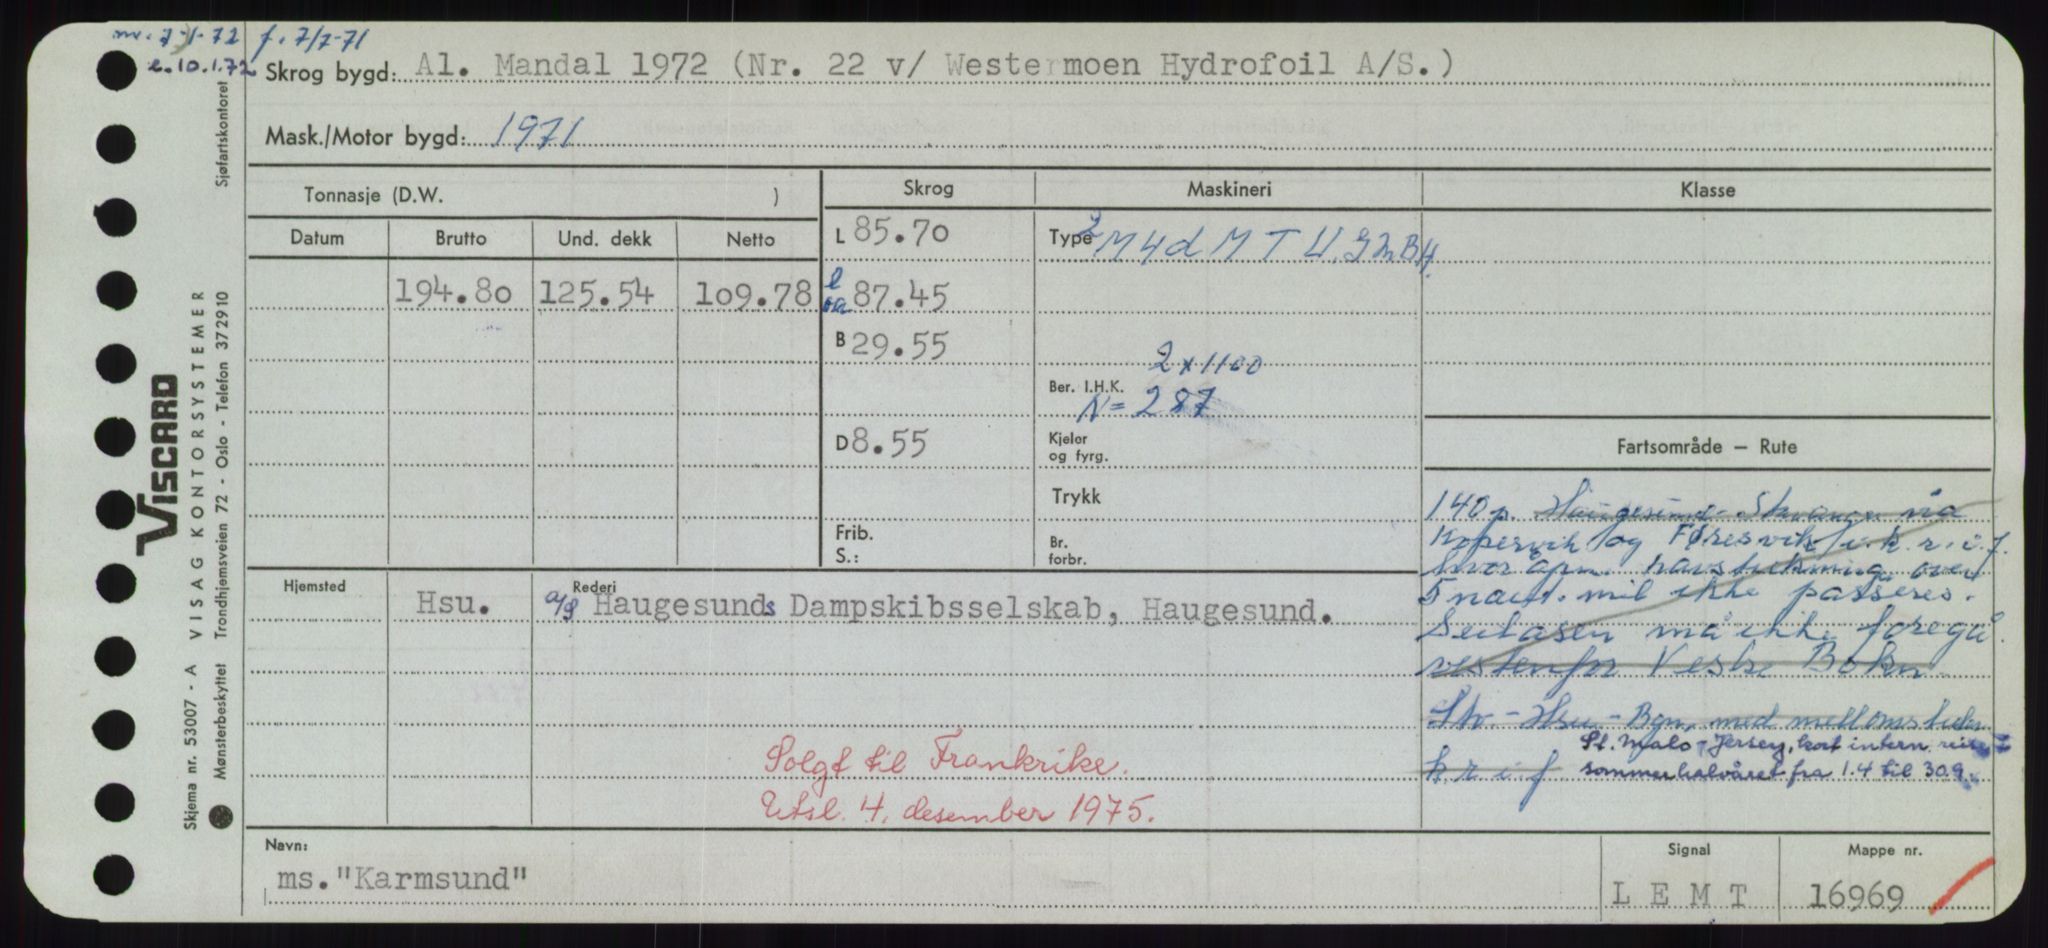 mv. 7-1-72 f. 7/7-71
e. 10.1.72
Skrog bygd: Al. Mandal 1972 (Nr. 22 v/ Westermoen Hydrofoil A/S.)
Mask./Motor bygd: 1971
Tonnasje (D.W. )
Skrog
Maskineri
Klasse
Datum
Brutto
Und. dekk
Netto
194.80
125.54
109.78
L 85.70
l oa 87.45
B 29.55
D 8.55
Frib.
S.:
Type 2 M 4d M T U. GMBH.
2 x 1100
Ber. I.H.K.
N = 287
Kjeler
og fyrg.
Trykk
Br.
forbr.
Fartsområde – Rute
140 p. Haugesund - Stavanger via
Kopervik og Føresvik i k. r. i. f.
hvor åpn. havstrekning over
5 naut. mil ikke passeres.
Seilasen må ikke foregå
vestenfor Vestre Bokn
Stv - Hsu - Bgn, med mellomstuen
St. Malo - Jersey, kort intern. reise
k. r. i. f
sommerhalvåret fra 1.4 til 30.9.
Hjemsted
Hsu.
Rederi
a/s Haugesunds Dampskibsselskab, Haugesund.
Solgt til Frankrike.
Utsl. 4. desember 1975.
Navn:
ms. "Karmsund"
Signal
L E M T
Mappe nr.
16969
VISCARD
Skjema nr. 53007 - A VISAG KONTORSYSTEMER
Mønsterbeskyttet Trondhjemsveien 72 - Oslo - Telefon 372910 Sjøfartskontoret